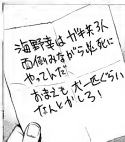 海野幸は
面倒みながら必死に
やってんだ
おまえも犬一匹ぐらい
なんとかしろ!